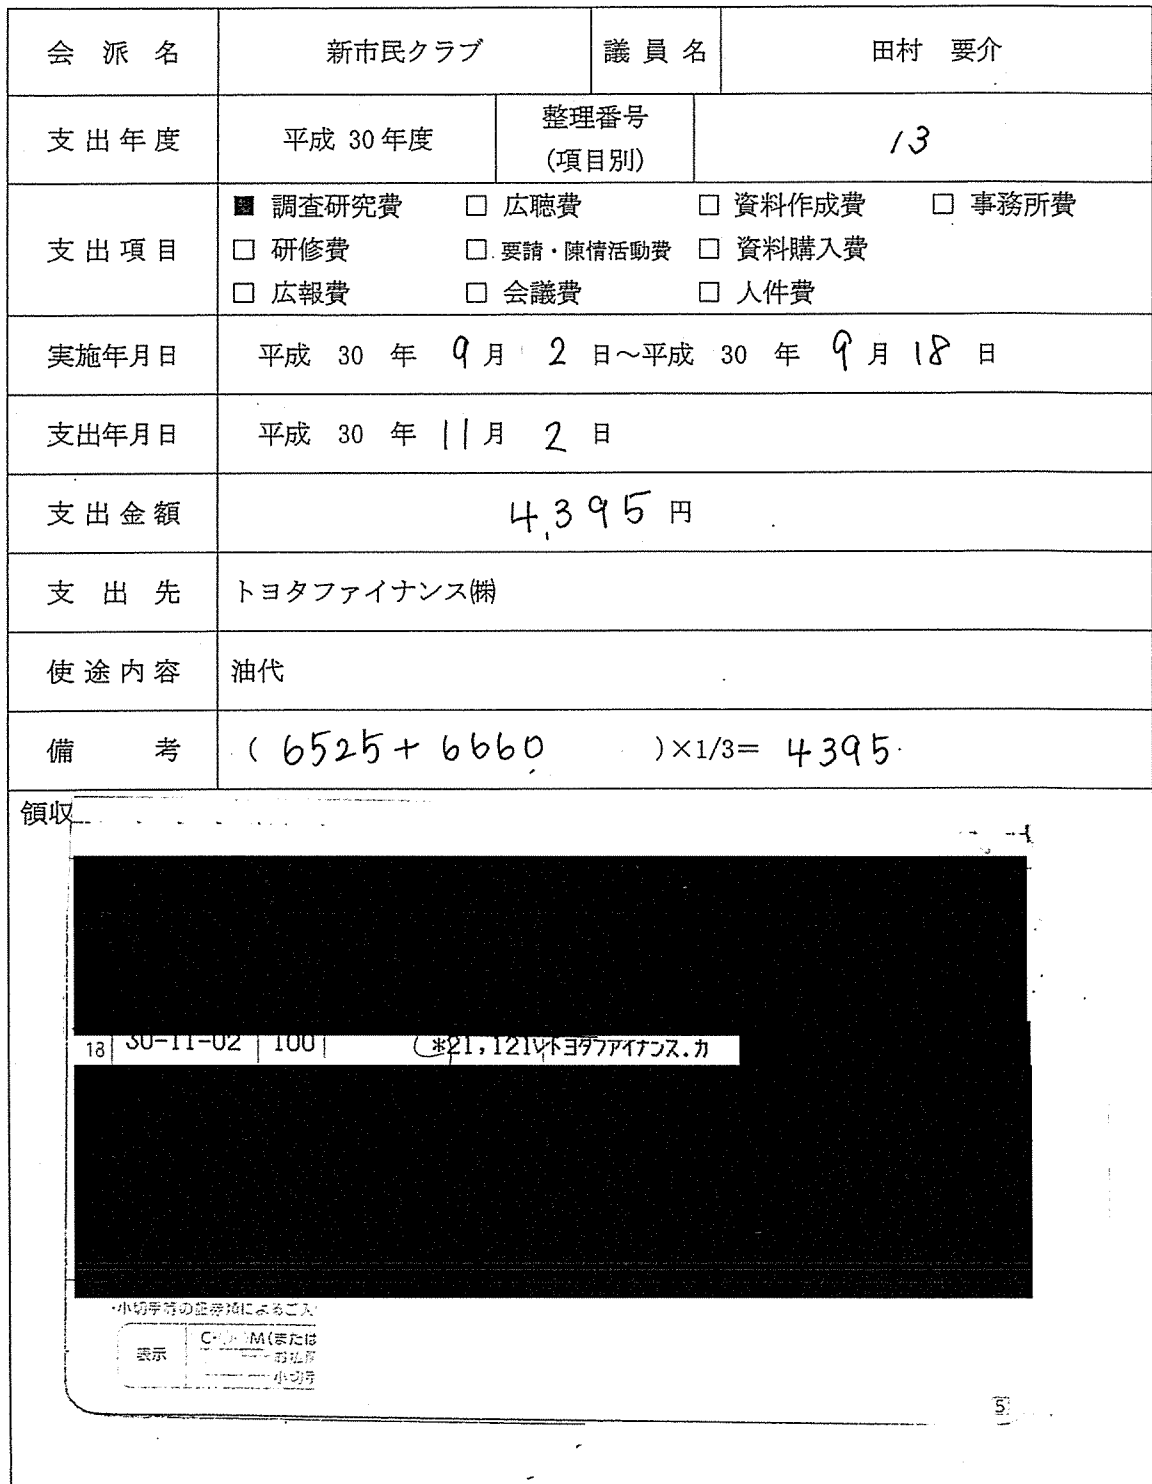 会派名 新市民クラブ 議員名 田村 要介
支出年度 平成 30年度 整理番号 (項目別) 13
支出項目
■ 調査研究費 □ 広聴費 □ 資料作成費 □ 事務所費
□ 研修費 □ 要請・陳情活動費 □ 資料購入費
□ 広報費 □ 会議費 □ 人件費
実施年月日 平成 30 年 9月 2 日~平成 30 年 9月 18 日
支出年月日 平成 30 年 11月 2 日
支出金額 4,395円
支出先 トヨタファイナンス㈱
使途内容 油代
備考 (6525+6660 )×1/3= 4395
領収
18 30-11-02 100 *21,121 トヨタファイナンス.カ
・小切手等の証券類によるご入
表示
M(または
お払戻
小切手
5